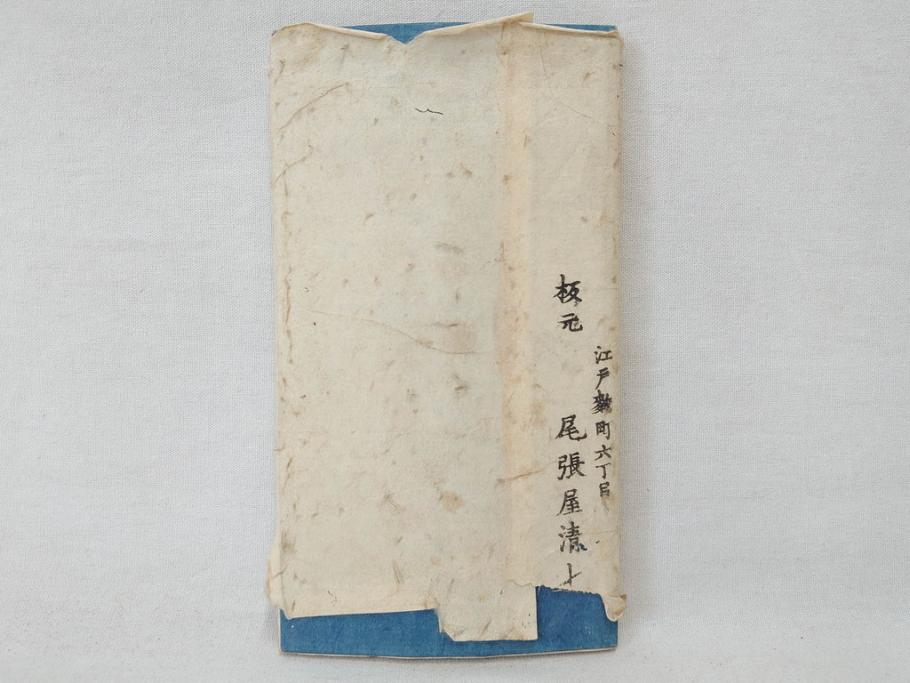 江戸麹町六丁目
板元
尾張屋清